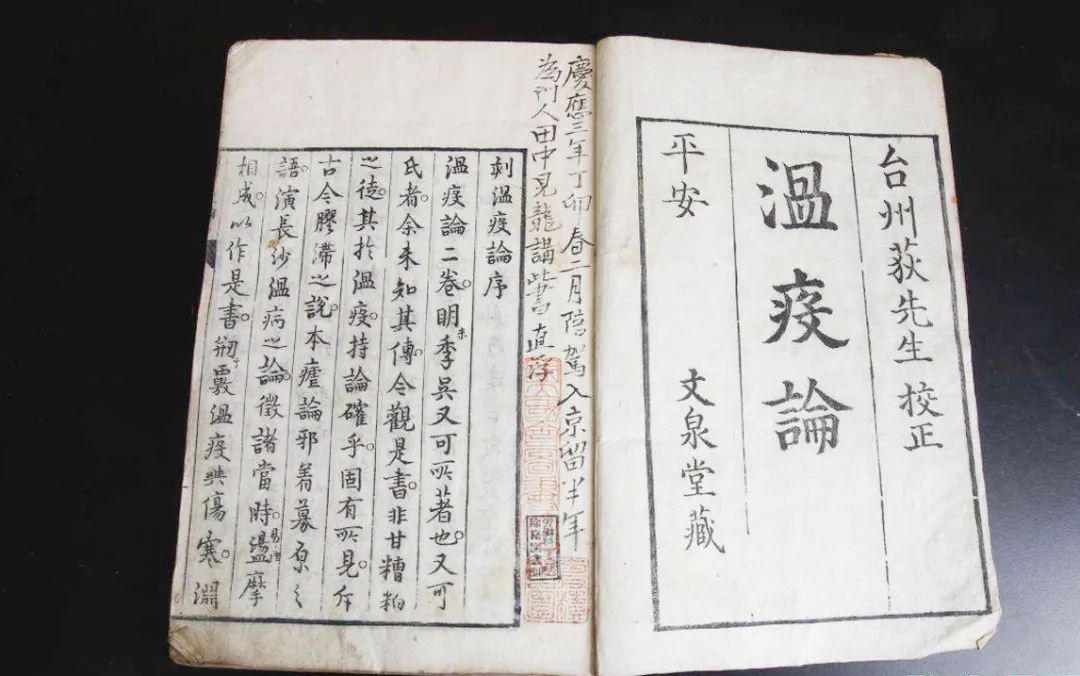 台州荻先生校正
溫疫論
平安 文泉堂藏
慶應三年丁卯春二月陪駕入京留半年
為刊人田中見龍講書 直浮
刻溫疫論序
溫疫論二卷明季吳又可所著也又可
氏者余未知其傳今觀是書非甘糟粕
之徒其於溫疫持論確乎固有所見斥
古今膠滯之說本瘧論邪着募原之
語演長沙溫病之論徵諸當時盪摩
相成以作是書剏覈溫疫與傷寒淵